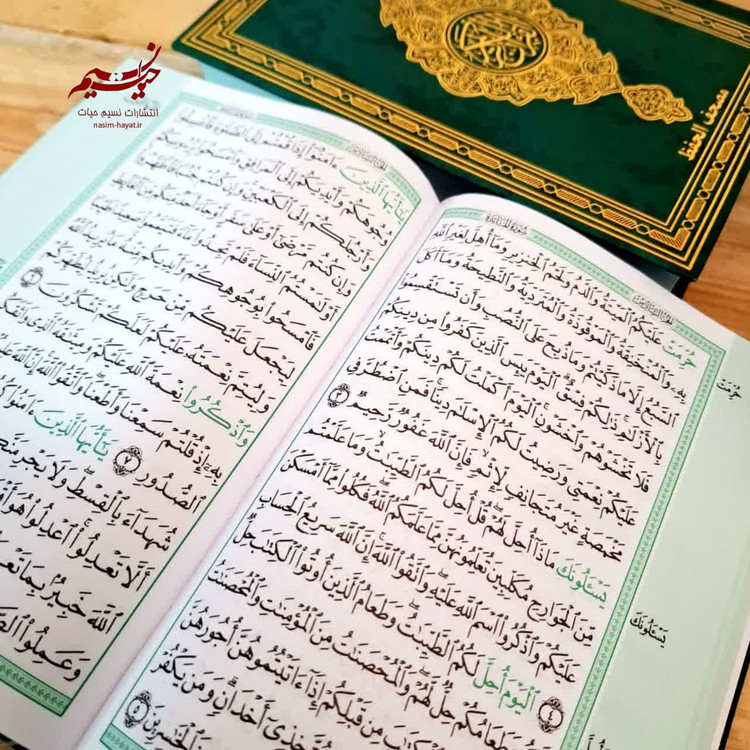 نسیم حیات
انتشارات نسیم حیات
nasim-hayat.ir
مصحف الحفظ
سُورَةُ المَائِدَةِ
حُرِّمَتْ عَلَيْكُمُ ٱلْمَيْتَةُ وَٱلدَّمُ وَلَحْمُ ٱلْخِنزِيرِ وَمَآ أُهِلَّ لِغَيْرِ ٱللَّهِ
بِهِۦ وَٱلْمُنْخَنِقَةُ وَٱلْمَوْقُوذَةُ وَٱلْمُتَرَدِّيَةُ وَٱلنَّطِيحَةُ وَمَآ أَكَلَ
ٱلسَّبُعُ إِلَّا مَا ذَكَّيْتُمْ وَمَا ذُبِحَ عَلَى ٱلنُّصُبِ وَأَن تَسْتَقْسِمُوا۟
بِٱلْأَزْلَٰمِ ۚ ذَٰلِكُمْ فِسْقٌ ۗ ٱلْيَوْمَ يَئِسَ ٱلَّذِينَ كَفَرُوا۟ مِن دِينِكُمْ
فَلَا تَخْشَوْهُمْ وَٱخْشَوْنِ ۚ ٱلْيَوْمَ أَكْمَلْتُ لَكُمْ دِينَكُمْ وَأَتْمَمْتُ
عَلَيْكُمْ نِعْمَتِى وَرَضِيتُ لَكُمُ ٱلْإِسْلَٰمَ دِينًا ۚ فَمَنِ ٱضْطُرَّ فِى
مَخْمَصَةٍ غَيْرَ مُتَجَانِفٍ لِّإِثْمٍ ۙ فَإِنَّ ٱللَّهَ غَفُورٌ رَّحِيمٌ ٣
يَسْـَٔلُونَكَ مَاذَآ أُحِلَّ لَهُمْ ۖ قُلْ أُحِلَّ لَكُمُ ٱلطَّيِّبَٰتُ ۙ وَمَا عَلَّمْتُم
مِّنَ ٱلْجَوَارِحِ مُكَلِّبِينَ تُعَلِّمُونَهُنَّ مِمَّا عَلَّمَكُمُ ٱللَّهُ ۖ فَكُلُوا۟ مِمَّآ أَمْسَكْنَ
عَلَيْكُمْ وَٱذْكُرُوا۟ ٱسْمَ ٱللَّهِ عَلَيْهِ ۖ وَٱتَّقُوا۟ ٱللَّهَ ۚ إِنَّ ٱللَّهَ سَرِيعُ ٱلْحِسَابِ
٤ ٱلْيَوْمَ أُحِلَّ لَكُمُ ٱلطَّيِّبَٰتُ ۖ وَطَعَامُ ٱلَّذِينَ أُوتُوا۟ ٱلْكِتَٰبَ حِلٌّ
طَعَامُكُمْ حِلٌّ لَّهُمْ ۖ وَٱلْمُحْصَنَٰتُ مِنَ ٱلْمُؤْمِنَٰتِ وَٱلْمُحْصَنَٰتُ
مِن قَبْلِكُمْ إِذَآ ءَاتَيْتُمُوهُنَّ أُجُورَهُنَّ
مُتَّخِذِىٓ أَخْدَانٍ ۗ وَمَن يَكْفُرْ
ٱلْخَٰسِرِينَ ٥
حُرِّمَتْ
يَسْـَٔلُونَكَ
يَٰٓأَيُّهَا ٱلَّذِينَ ءَامَنُوٓا۟ إِذَا قُمْتُمْ إِلَى ٱلصَّلَوٰةِ
وُجُوهَكُمْ وَأَيْدِيَكُمْ إِلَى ٱلْمَرَافِقِ وَٱمْسَحُوا۟
وَأَرْجُلَكُمْ إِلَى ٱلْكَعْبَيْنِ ۚ وَإِن كُنتُمْ جُنُبًا
وَإِن كُنتُم مَّرْضَىٰٓ أَوْ عَلَىٰ سَفَرٍ أَوْ جَآءَ أَحَدٌ مِّنكُم مِّنَ ٱلْغَآئِطِ
أَوْ لَٰمَسْتُمُ ٱلنِّسَآءَ فَلَمْ تَجِدُوا۟ مَآءً فَتَيَمَّمُوا۟ صَعِيدًا
فَٱمْسَحُوا۟ بِوُجُوهِكُمْ وَأَيْدِيكُم مِّنْهُ ۚ مَا يُرِيدُ ٱللَّهُ
لِيَجْعَلَ عَلَيْكُم مِّنْ حَرَجٍ وَلَٰكِن يُرِيدُ لِيُطَهِّرَكُمْ
وَلِيُتِمَّ نِعْمَتَهُۥ عَلَيْكُمْ لَعَلَّكُمْ تَشْكُرُونَ ٦
وَٱذْكُرُوا۟ نِعْمَةَ ٱللَّهِ عَلَيْكُمْ وَمِيثَٰقَهُ ٱلَّذِى وَاثَقَكُم
بِهِۦٓ إِذْ قُلْتُمْ سَمِعْنَا وَأَطَعْنَا ۖ وَٱتَّقُوا۟ ٱللَّهَ ۚ إِنَّ ٱللَّهَ
ٱلصُّدُورِ ٧ يَٰٓأَيُّهَا ٱلَّذِينَ ءَامَنُوا۟
شُهَدَآءَ بِٱلْقِسْطِ ۖ وَلَا يَجْرِمَنَّكُمْ
أَلَّا تَعْدِلُوا۟ ۚ ٱعْدِلُوا۟ هُوَ
ٱللَّهَ خَبِيرٌۢ بِمَا
وَعَمِلُوا۟